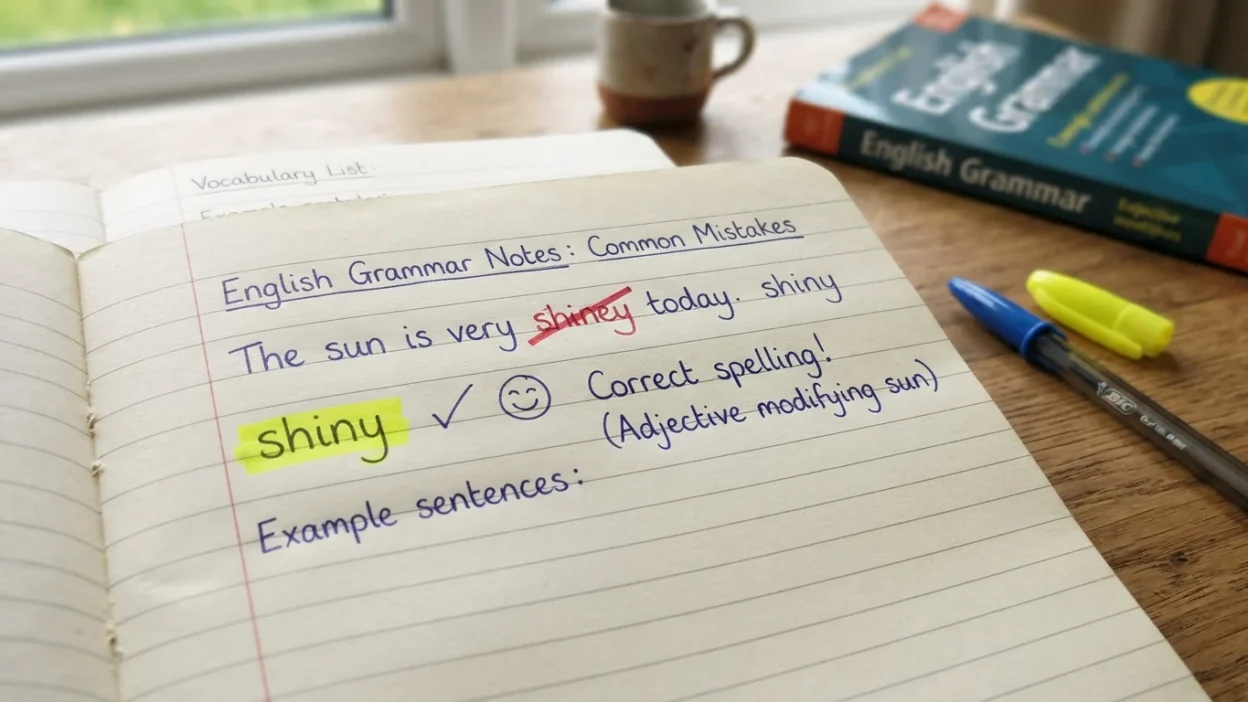 Vocabulary List:
English Grammar Notes: Common Mistakes
The sun is very shiney today. shiny
shiny ✓ Correct spelling!
(Adjective modifying sun)
Example sentences:
English
Grammar
English Grammar
BIC